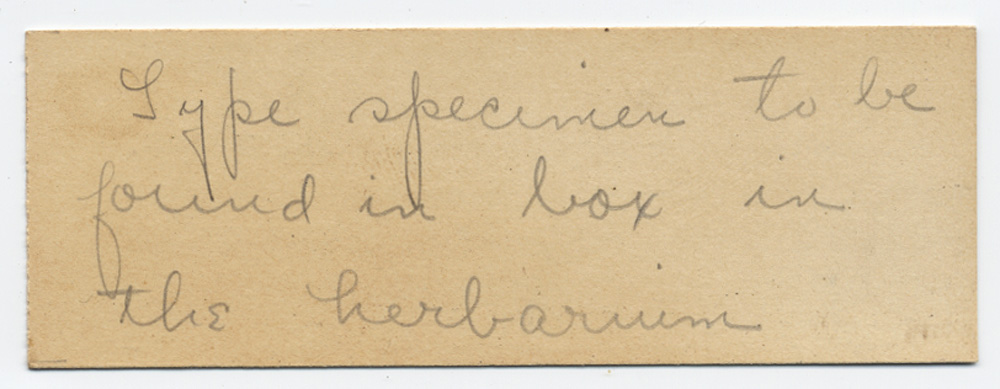 Type specimen to be
found in box in
the herbarium